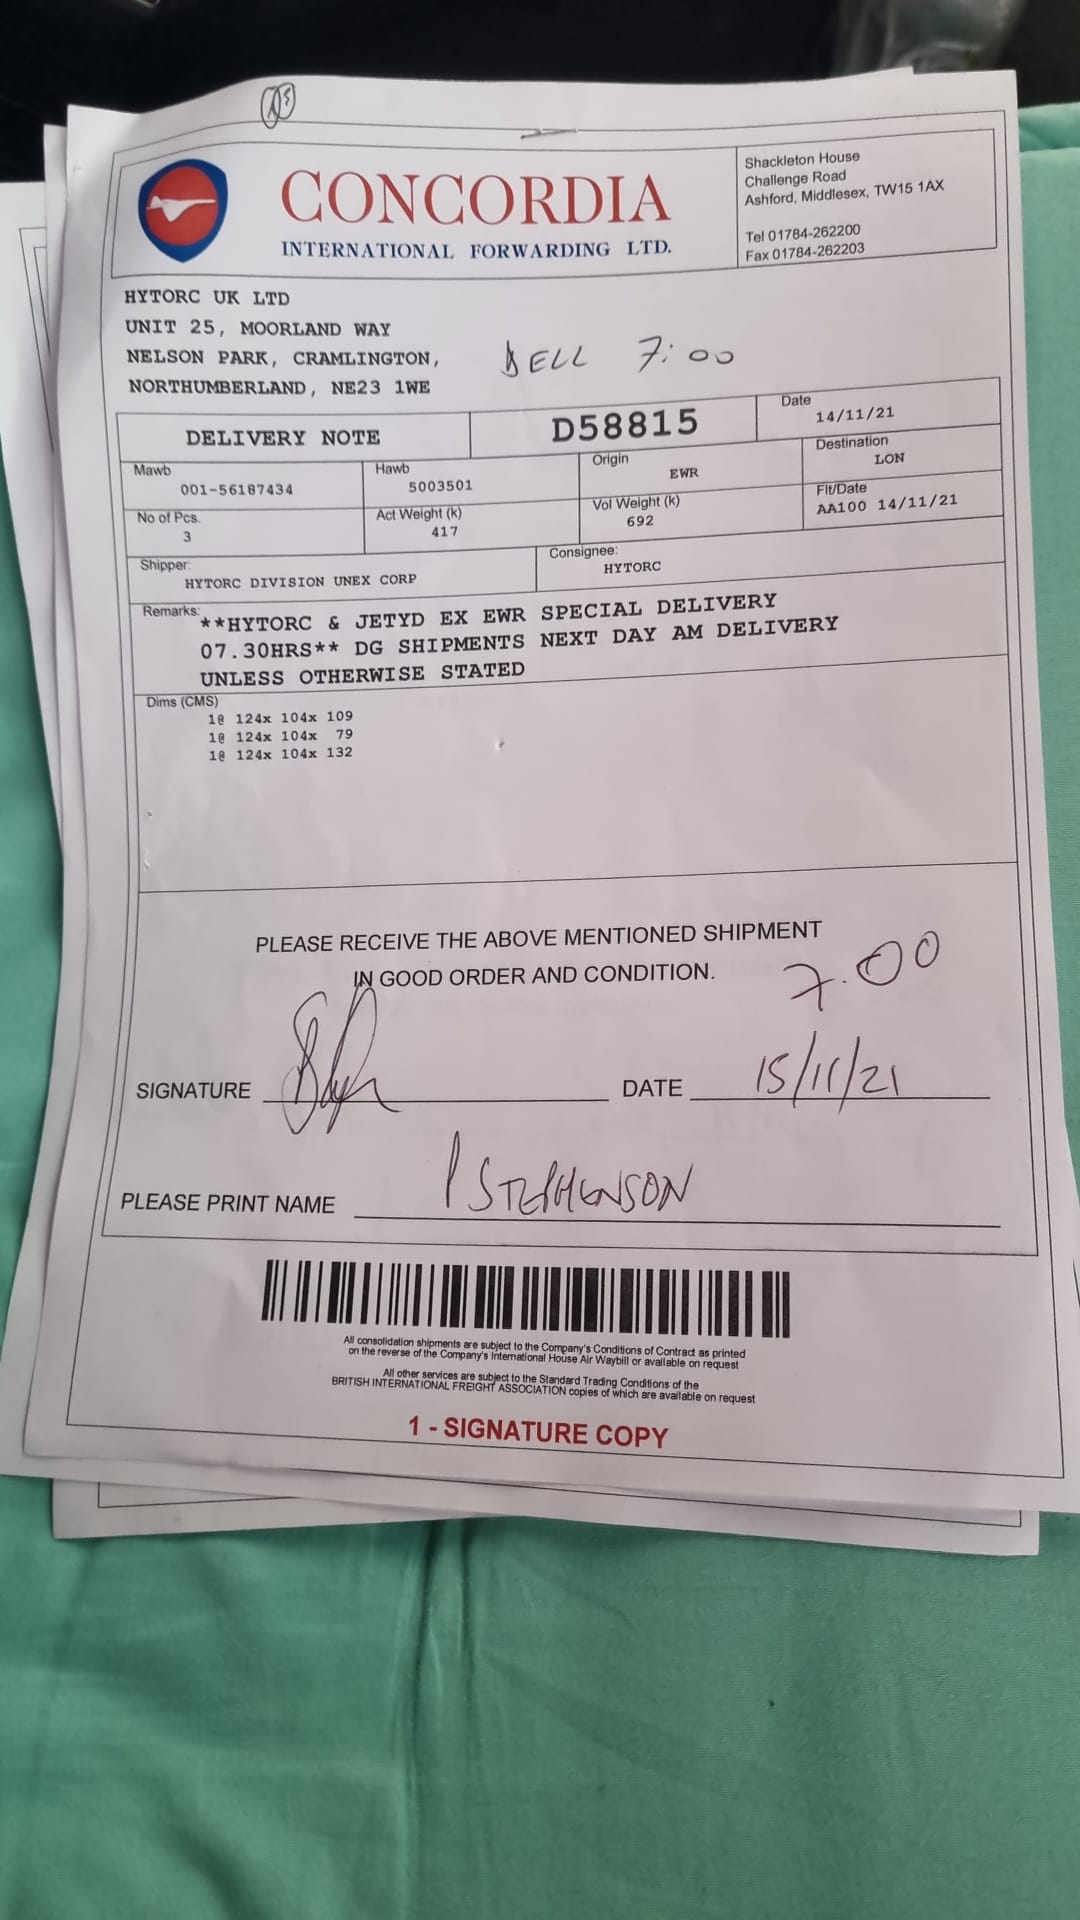 CONCORDIA
INTERNATIONAL FORWARDING LTD.
Shackleton House
Challenge Road
Ashford, Middlesex, TW15 1AX
Tel 01784-262200
Fax 01784-262203
HYTORC UK LTD
UNIT 25, MOORLAND WAY
NELSON PARK, CRAMLINGTON,
NORTHUMBERLAND, NE23 1WE
BELL 7:00
DELIVERY NOTE
D58815
Date
14/11/21
Mawb
001-56187434
Hawb
5003501
Origin
EWR
Destination
LON
No of Pcs.
3
Act Weight (k)
417
Vol Weight (k)
692
Flt/Date
AA100 14/11/21
Shipper:
HYTORC DIVISION UNEX CORP
Consignee:
HYTORC
Remarks:
**HYTORC & JETYD EX EWR SPECIAL DELIVERY
07.30HRS** DG SHIPMENTS NEXT DAY AM DELIVERY
UNLESS OTHERWISE STATED
Dims (CMS)
1@ 124x 104x 109
1@ 124x 104x 79
1@ 124x 104x 132
PLEASE RECEIVE THE ABOVE MENTIONED SHIPMENT
IN GOOD ORDER AND CONDITION.
7.00
SIGNATURE
DATE 15/11/21
PLEASE PRINT NAME P STEPHENSON
All consolidation shipments are subject to the Company's Conditions of Contract as printed
on the reverse of the Company's International House Air Waybill or available on request
All other services are subject to the Standard Trading Conditions of the
BRITISH INTERNATIONAL FREIGHT ASSOCIATION copies of which are available on request
1 - SIGNATURE COPY